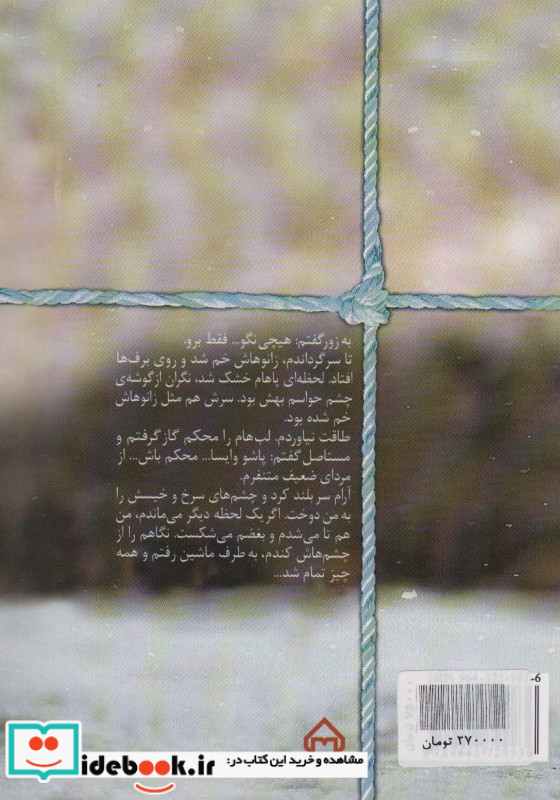 به زور گفتم: هیچی نگو... فقط برو.
تا سرگرداندم، زانوهاش خم شد و روی برف‌ها
افتاد. لحظه‌ای پاهام خشک شد، نگران از گوشه‌ی
چشم حواسم بهش بود. سرش هم مثل زانوهاش
خم شده بود.
طاقت نیاوردم. لب‌هام را محکم گاز گرفتم و
مستاصل گفتم: پاشو وایسا... محکم باش... از
مردای ضعیف متنفرم.
آرام سر بلند کرد و چشم‌های سرخ و خیسش را
به من دوخت. اگر یک لحظه دیگر می‌ماندم، من
هم تا می‌شدم و بغضم می‌شکست. نگاهم را از
چشم‌هاش کندم، به طرف ماشین رفتم و همه
چیز تمام شد...
-6
۲۷۰۰۰۰ تومان
مشاهده و خرید این کتاب در:
idebook.ir